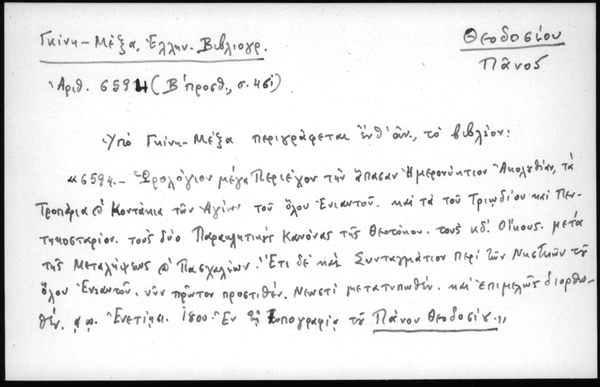 Γκίνη-Μέξα, Ἑλλην. Βιβλιογρ.
Θεοδοσίου
Πάνος
Ἀριθ. 6594 (Β΄προσθ., σ. 46)
Ὑπὸ Γκίνη-Μέξα περιγράφεται ἐνθ᾽ἀν., τὸ βιβλίον:
«6594.- Ὡρολόγιον μέγα Περιέχον τὴν ἅπασαν Ἡμερονύκτιον Ἀκολυθίαν, τὰ
Τροπάρια ϗ Κοντάκια τῶν Ἁγίων τοῦ ὅλου Ἐνιαυτοῦ. καὶ τὰ τοῦ Τριωδίου καὶ Πεν-
τηκοσταρίου. τοὺς δύο Παρακλητικοὺς Κανόνας τῆς Θεοτόκου. τοὺς κδ΄. Οἴκους. μετὰ
τῆς Μεταλήψεως ϗ Πασχαλίων. Ἔτι δὲ καὶ Συνταγμάτιον Περὶ τῶν Νηστειῶν τοῦ
ὅλου Ἐνιαυτοῦ. νῦν πρῶτον προστιθέν. Νεωστὶ μετατυπωθὲν. καὶ ἐπιμελῶς διορθω-
θέν. ͵αω. Ἐνετίῃσι. 1800. Ἐν τῇ Τυπογραφίᾳ τοῦ Πάνου Θεοδοσίου.»